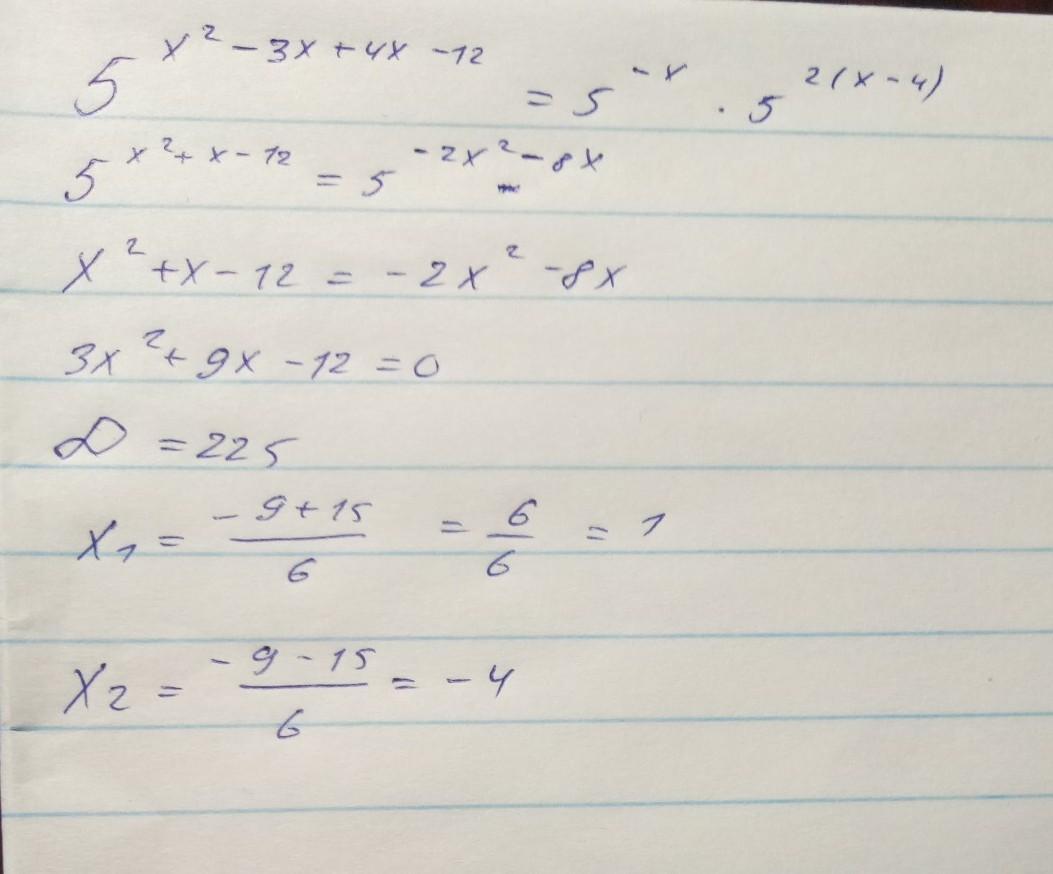 5^{x^2 - 3x + 4x - 12} = 5^{-x} · 5^{2(x-4)}
5^{x^2 + x - 12} = 5^{-2x^2 - 8x}
x^2 + x - 12 = -2x^2 - 8x
3x^2 + 9x - 12 = 0
D = 225
x_1 = \frac{-9+15}{6} = \frac{6}{6} = 1
x_2 = \frac{-9-15}{6} = -4